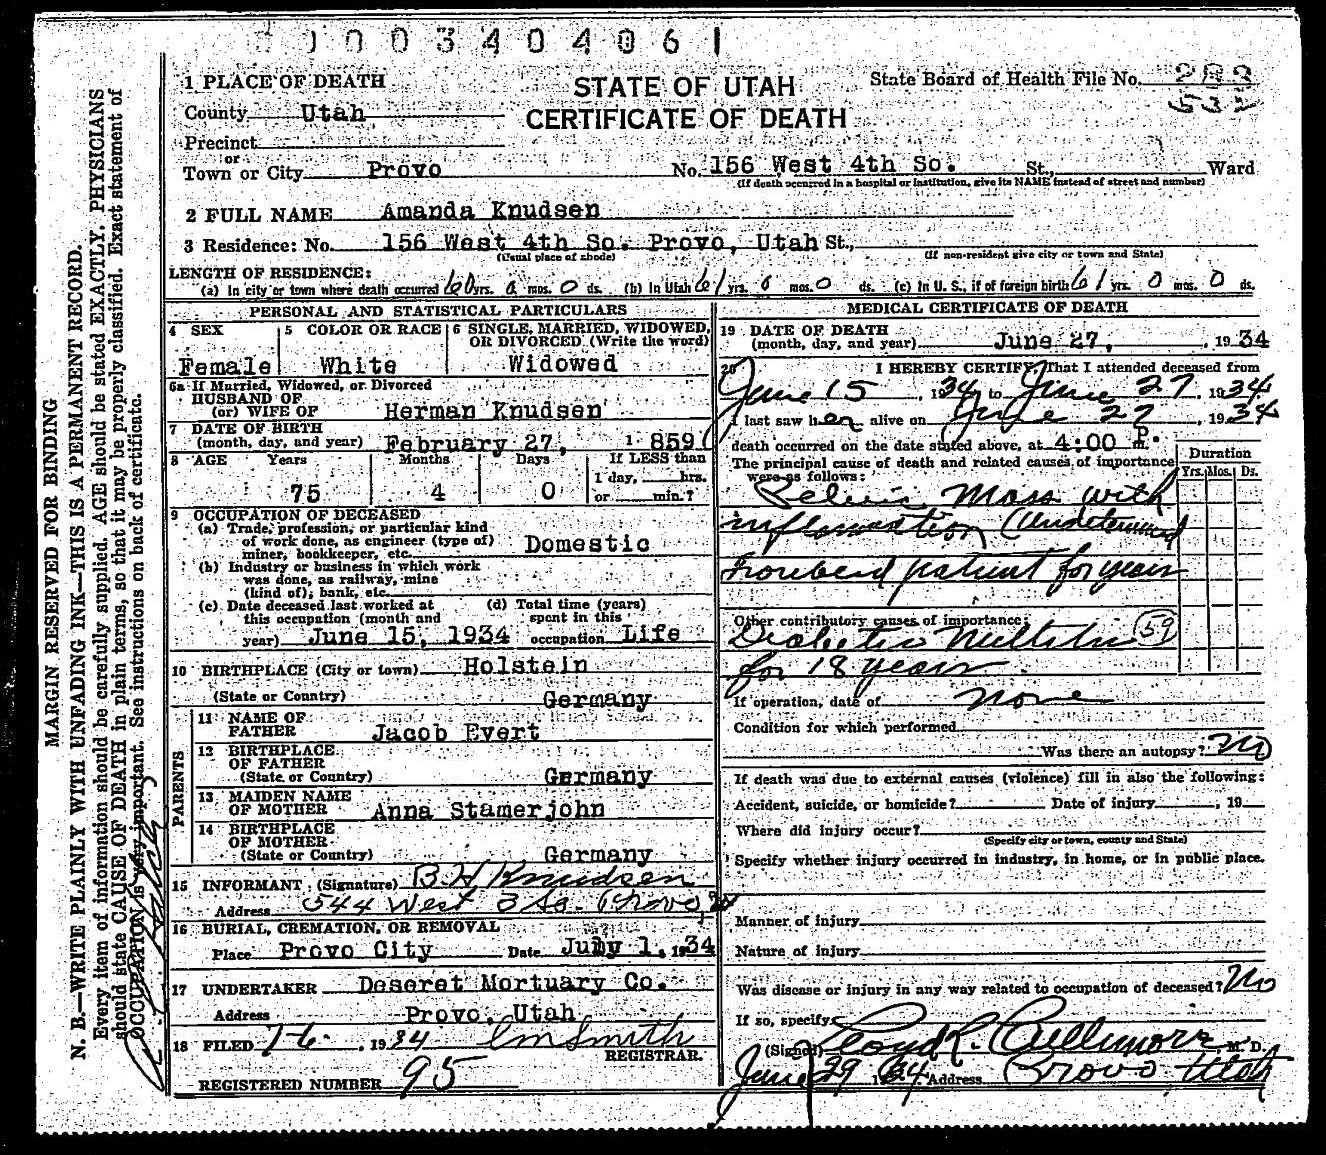 003404061
1 PLACE OF DEATH
STATE OF UTAH
CERTIFICATE OF DEATH
State Board of Health File No.
County Utah
Precinct
or
Town or City Provo No. 156 West 4th So. St., Ward
(If death occurred in a hospital or institution, give its NAME instead of street and number)
2 FULL NAME Amanda Knudsen
3 Residence: No. 156 West 4th So. Provo, Utah St.,
(Usual place of abode) (If non-resident give city or town and State)
LENGTH OF RESIDENCE:
(a) In city or town where death occurred 60 yrs. 0 mos. 0 ds. (b) In Utah 61 yrs. 0 mos. 0 ds. (c) In U. S., if of foreign birth 61 yrs. 0 mos. 0 ds.
PERSONAL AND STATISTICAL PARTICULARS
4 SEX
Female
5 COLOR OR RACE
White
6 SINGLE, MARRIED, WIDOWED,
OR DIVORCED (Write the word)
Widowed
6a If Married, Widowed, or Divorced
HUSBAND OF
(or) WIFE OF Herman Knudsen
7 DATE OF BIRTH
(month, day, and year) February 27, 1859
8 AGE Years Months Days If LESS than
75 4 0 1 day, hrs.
or min.?
9 OCCUPATION OF DECEASED
(a) Trade, profession, or particular kind
of work done, as engineer (type of)
miner, bookkeeper, etc. Domestic
(b) Industry or business in which work
was done, as railway, mine
(kind of), bank, etc.
(c) Date deceased last worked at
this occupation (month and
year) June 15, 1934
(d) Total time (years)
spent in this
occupation Life
10 BIRTHPLACE (City or town) Holstein
(State or Country) Germany
PARENTS
11 NAME OF
FATHER Jacob Evert
12 BIRTHPLACE
OF FATHER
(State or Country) Germany
13 MAIDEN NAME
OF MOTHER Anna Stamerjohn
14 BIRTHPLACE
OF MOTHER
(State or Country) Germany
15 INFORMANT (Signature) B H Knudsen
Address 544 West 3 So. Provo
16 BURIAL, CREMATION, OR REMOVAL
Place Provo City Date July 1, 1934
17 UNDERTAKER Deseret Mortuary Co.
Address Provo, Utah
18 FILED 7-6-, 1934 Smith
REGISTRAR.
REGISTERED NUMBER 95
MEDICAL CERTIFICATE OF DEATH
19 DATE OF DEATH
(month, day, and year) June 27, , 1934
20 I HEREBY CERTIFY, That I attended deceased from
June 15, 1934, to June 27, 1934
I last saw her alive on June 27, 1934
death occurred on the date stated above, at 4:00 P. m.
The principal cause of death and related causes of importance
were as follows:
Duration
Yrs. Mos. Ds.
Pelvic Mass with
inflamation (Undetermined
patient for years
Other contributory causes of importance:
Diabetes Mellitus 59
for 18 years
If operation, date of none
Condition for which performed
Was there an autopsy? No
If death was due to external causes (violence) fill in also the following:
Accident, suicide, or homicide? Date of injury , 19
Where did injury occur?
(Specify city or town, county and State)
Specify whether injury occurred in industry, in home, or in public place.
Manner of injury
Nature of injury
Was disease or injury in any way related to occupation of deceased? No
If so, specify
(Signed) Lloyd L. Cullimore, M. D.
June 29 1934 Address Provo Utah
MARGIN RESERVED FOR BINDING
N. B.—WRITE PLAINLY WITH UNFADING INK—THIS IS A PERMANENT RECORD.
Every item of information should be carefully supplied. AGE should be stated EXACTLY. PHYSICIANS
should state CAUSE OF DEATH in plain terms, so that it may be properly classified. Exact statement of
OCCUPATION is very important. See instructions on back of certificate.